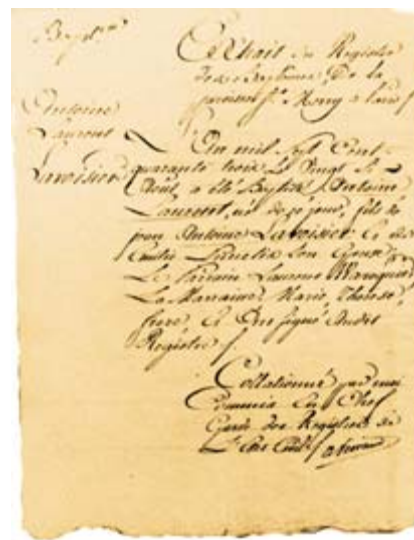 Baptême
Extrait du Registre
des Baptêmes De la
paroisse St. Merry a Paris
Antoine
Laurent
Lavoisier
L'an mil Sept Cent
quarante trois Le Vingt Six
Aout, a été Baptisé Antoine
Laurent, né de ce jour, fils de
jean Antoine Lavoisier Et de
Emilie Punctis Son Epouse
Le Parrain Laurent Waroquier
La Marraine Marie Therese
frere, Et Ont signé Audit
Registre
Collationné par moi
Commis En Chef
Garde des Registres de
L'Etat Civil